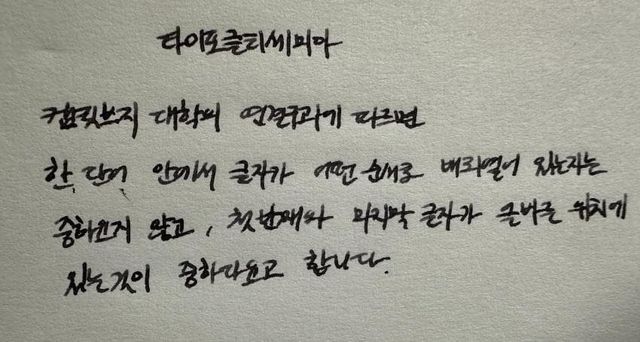 타이포글티세피아
캠릿브지 대학의 연결구과에 따르면
한 단어 안에서 글자가 어떤 순새로 배리열어 있는지는
중하요지 않고, 첫번째와 마지막 글자가 올바른 위치에
있는것이 중하다요고 합니다.